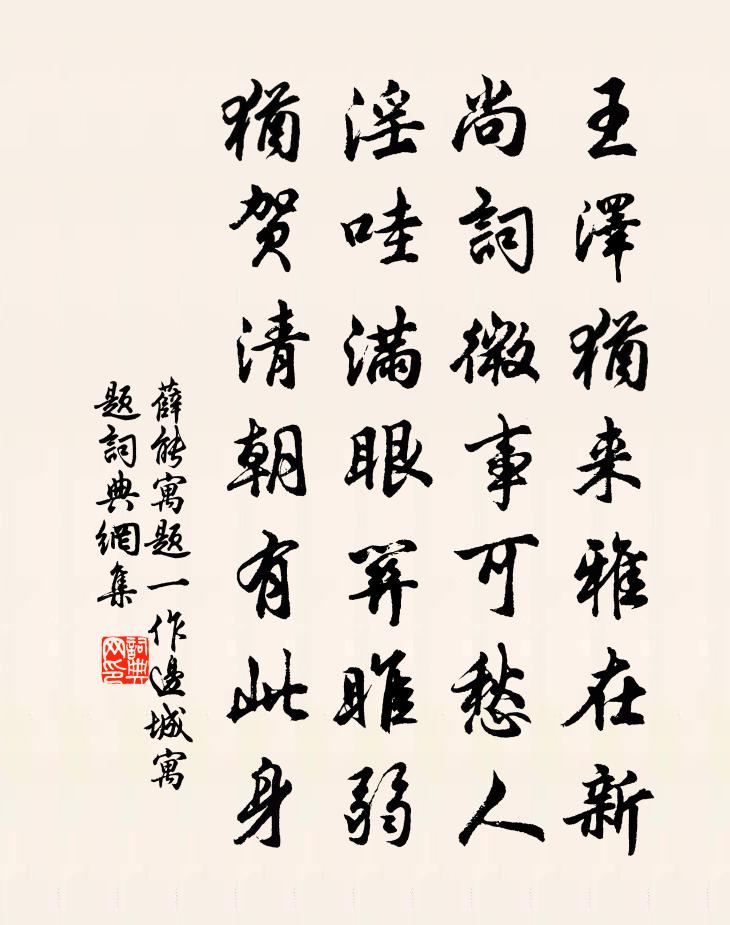 王澤猶来雅在新
尚詞微事可愁人
淫哇满眼关雎弱
猶贺清朝有此身
薛能寓题一作邊城寓
题詞典網集
詞典
网印